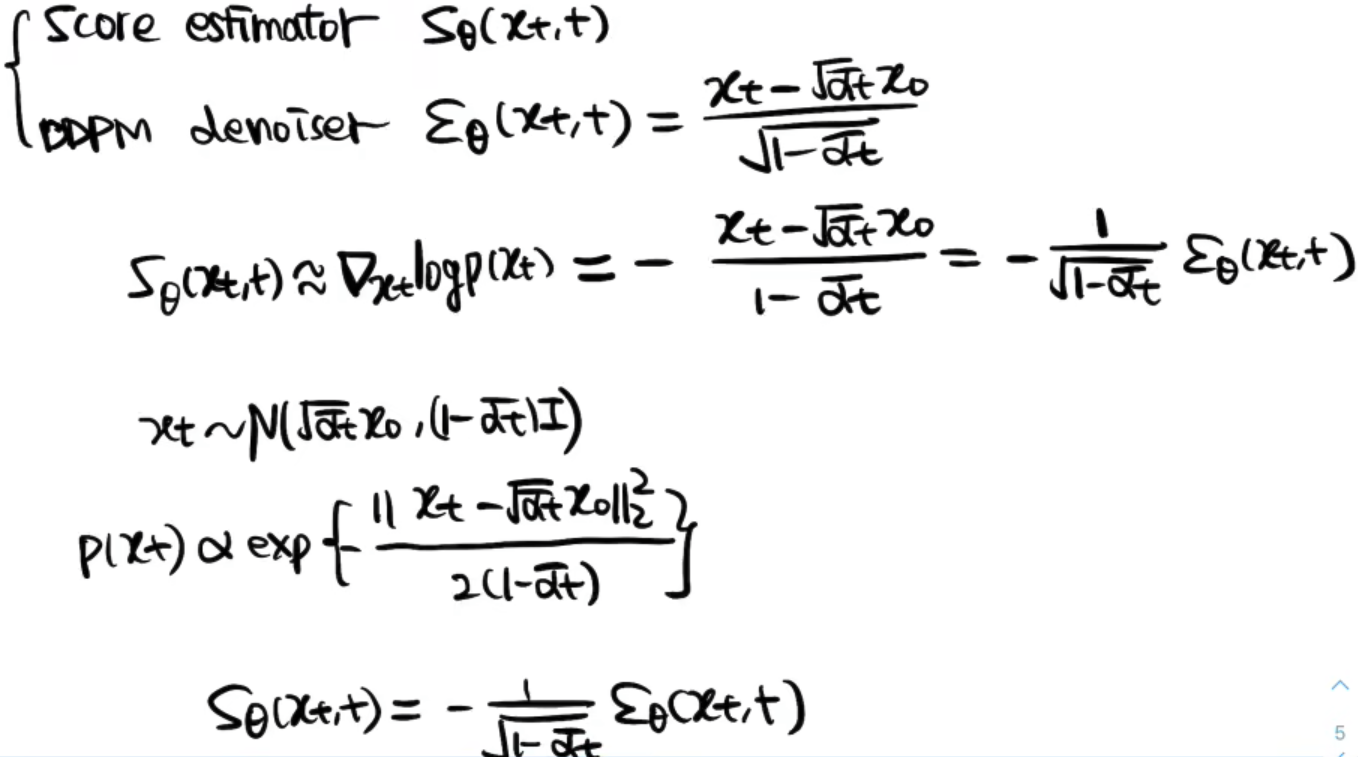 Score estimator S_θ(x_t,t)
DDPM denoiser ε_θ(x_t,t) = (x_t − √ᾱ_t x_0) / √(1−ᾱ_t)
S_θ(x_t,t) ≈ ∇_{x_t} log p(x_t) = − (x_t − √ᾱ_t x_0) / (1−ᾱ_t) = − 1/√(1−ᾱ_t) ε_θ(x_t,t)
x_t ~ N(√ᾱ_t x_0, (1−ᾱ_t)I)
p(x_t) ∝ exp{− ||x_t − √ᾱ_t x_0||₂² / 2(1−ᾱ_t)}
S_θ(x_t,t) = − 1/√(1−ᾱ_t) ε_θ(x_t,t)
5